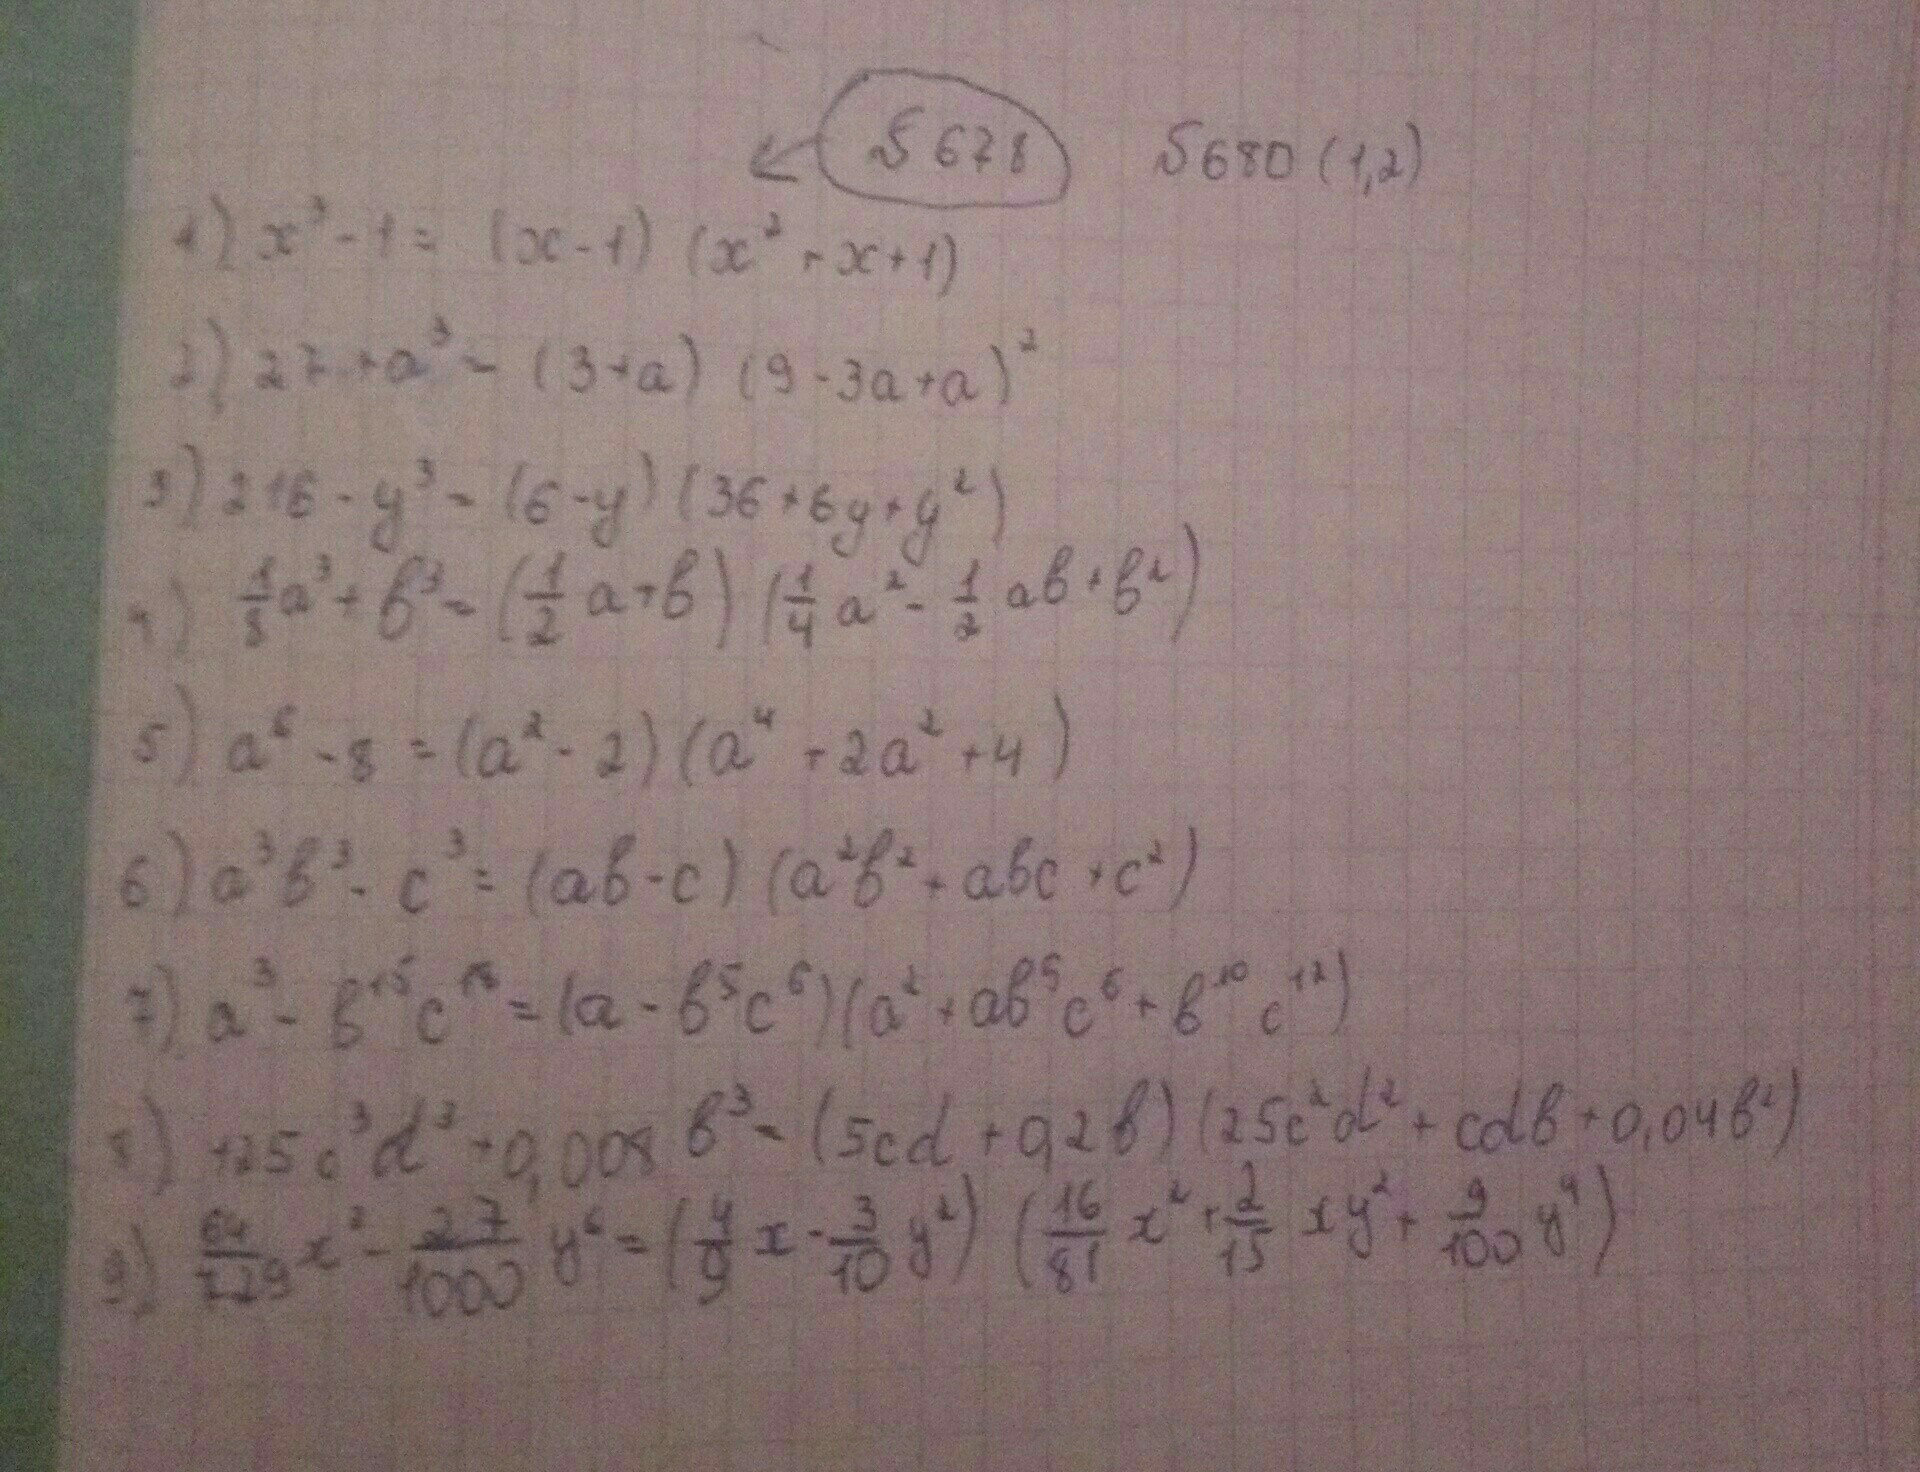 №678 №680 (1,2)
1) x³ - 1 = (x - 1) (x² + x + 1)
2) 27 + a³ = (3 + a) (9 - 3a + a)²
3) 216 - y³ = (6 - y) (36 + 6y + y²)
4) 1/8 a³ + b³ = (1/2 a + b) (1/4 a² - 1/2 ab + b²)
5) a⁶ - 8 = (a² - 2) (a⁴ + 2a² + 4)
6) a³b³ - c³ = (ab - c) (a²b² + abc + c²)
7) a³ - b¹⁵c¹⁸ = (a - b⁵c⁶)(a² + ab⁵c⁶ + b¹⁰c¹²)
8) 125c³d³ + 0,008 b³ = (5cd + 0,2b) (25c²d² + cdb + 0,04b²)
9) 64/729 x³ - 27/1000 y⁶ = (4/9 x - 3/10 y²) (16/81 x² + 2/15 xy² + 9/100 y⁴)